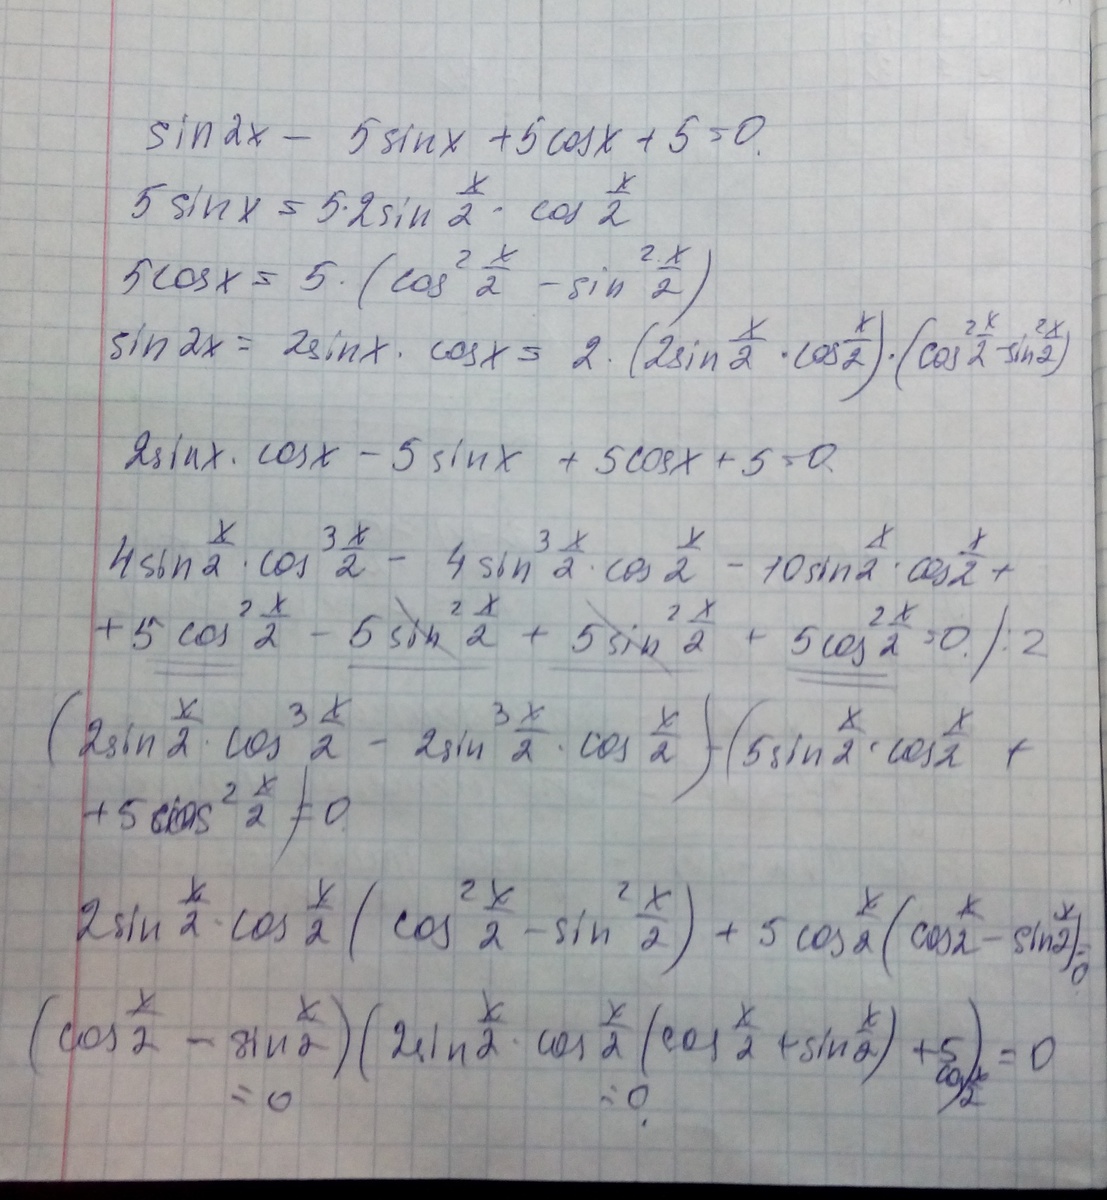 sin2x − 5sinx + 5cosx + 5 = 0.
5sinx = 5·2sin x/2 · cos x/2
5cosx = 5·(cos² x/2 − sin² x/2)
sin2x = 2sinx · cosx = 2·(2sin x/2 · cos x/2)·(cos² x/2 − sin² x/2)
2sinx · cosx − 5sinx + 5cosx + 5 = 0.
4sin x/2 · cos³ x/2 − 4sin³ x/2 · cos x/2 − 10sin x/2 · cos x/2 +
+ 5cos² x/2 − 5sin² x/2 + 5sin² x/2 + 5cos² x/2 = 0. / :2
(2sin x/2 · cos³ x/2 − 2sin³ x/2 · cos x/2) − (5sin x/2 · cos x/2 +
+ 5cos² x/2) = 0
2sin x/2 · cos x/2 (cos² x/2 − sin² x/2) + 5cos x/2 (cos x/2 − sin x/2) = 0
(cos x/2 − sin x/2)(2sin x/2 · cos x/2 (cos x/2 + sin x/2) + 5 cos x/2) = 0
= 0 = 0.